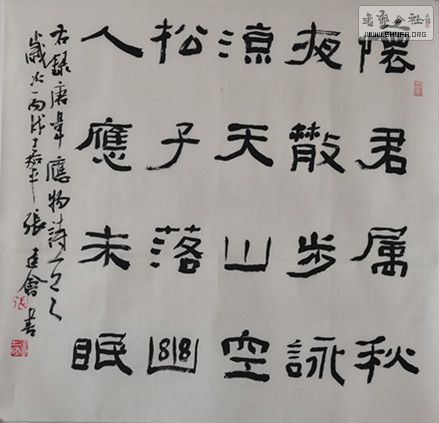 懷君属秋
夜散步詠
涼天山空
松子落幽
人應未眠
右録唐韋應物詩一首
歲次丙戌 張建會書
書藝公社
WWW.EHUFA.ORG